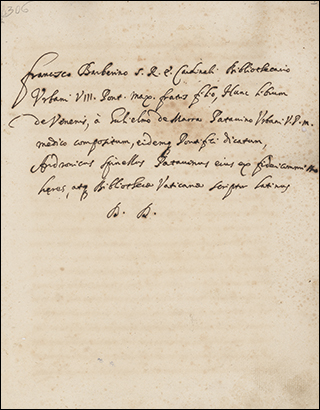 306
Francisco Barberino S. R. E. Cardinali Bibliothecario
Urbani VIII. Pont. max. fratris filio, Hunc librum
de Venenis, à Guilielmo de Marra Patavino Urbani V. P. m.
medico compositum, eidemq Pontifici dicatum,
Andronicus Spinellus Patavinus eius ex fideicommisso
heres, atq Bibliothecae Vaticanae scriptor latinus
D. D.